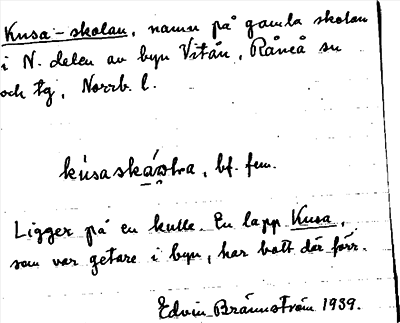 Kusa-skolan, namn på gamla skolan
i N. delen av byn Vitån, Råneå sn
och tg, Norrb. l.
kùsaská, bf. fem.
Ligger på en kulle. En lapp Kusa,
som var getare i byn, har bott där förr.
Edvin Brännström 1939.